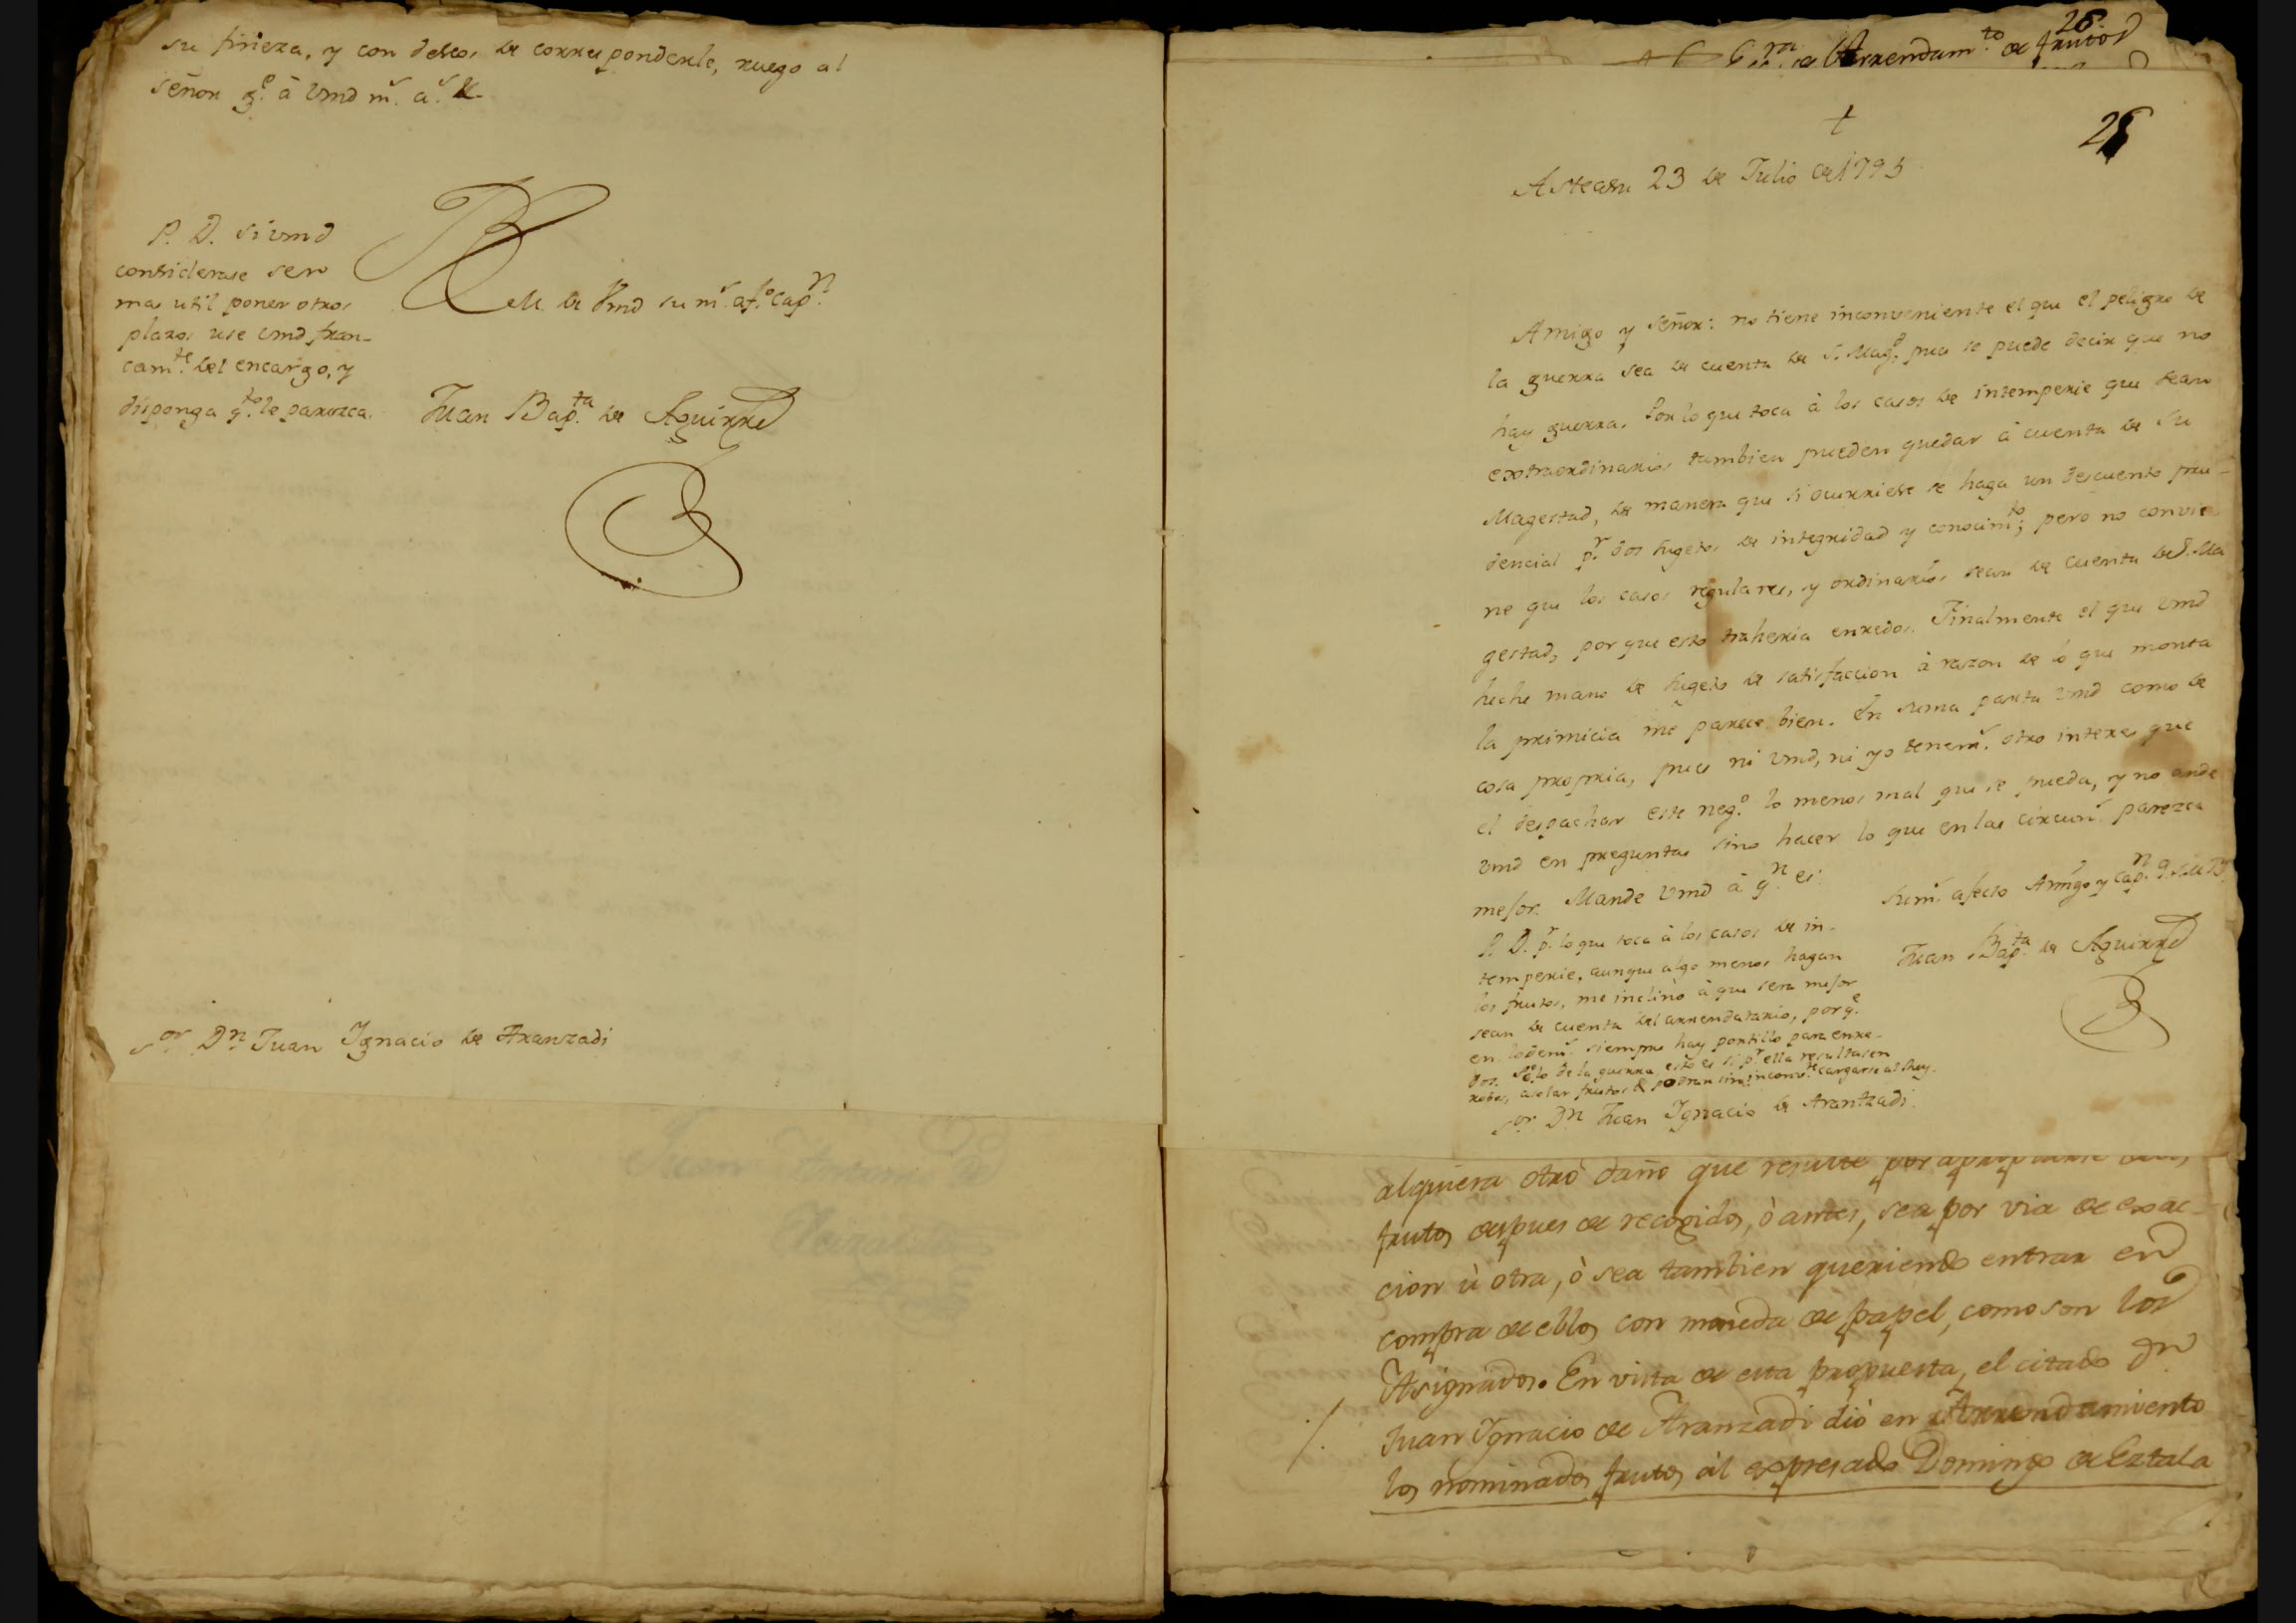 su fineza, y con deseos de corresponderle, ruego al
señor g.e à Vmd m.s a.s &
P. D. si vmd
considerase ser
mas util poner otros
plazos use vmd fran-
cam.te del encargo, y
disponga q.to le parezca.
B. L. M. de Vmd su m.s af.to Cap.n
Juan Bap.ta de Aguirre
S.or D.n Juan Ignacio de Aranzadi
Arrendam.to de frutos
28
+
28
Asteasu 23 de Julio de 1795
Amigo y señor: no tiene inconveniente el que el peligro de
la guerra sea de cuenta de S. Mag.d pues se puede decir que no
hay guerra. Por lo que toca à los casos de intemperie que sean
extraordinarios tambien pueden quedar à cuenta de Su
Magestad, de manera que si ocurriese se haga un descuento pru-
dencial p.r dos sugetos de integridad y conocim.to; pero no convie
ne que los casos regulares, y ordinarios sean de cuenta de S. Ma
gestad, porque esto traheria enredos. Finalmente el que vmd
heche mano de sugeto de satisfaccion à razon de lo que monta
la primicia me parece bien. En suma parta vmd como de
cosa propria, pues ni vmd, ni yo tenem.s otro interes que
el despachar este neg.o lo menos mal que se pueda, y no ande
vmd en preguntas sino hacer lo que en las circun.s parezca
mejor. Mande Vmd à q.n es
su m.s afecto Amigo y Cap.n q. S. M. B.
Juan Bap.ta de Aguirre
P. D. p.r lo que toca à los casos de in-
temperie, aunque algo menos hagan
los frutos, me inclino à que sera mejor
sean de cuenta del arrendatario, porq.e
en lo dem.s siempre hay portillo para enre-
dos. Solo de la guerra, esto es si p.r ella resultasen
robos, asolar frutos & podran sin inconv.te cargarse al Rey.
S.or D.n Juan Ignacio de Arantzadi
alquiera otro daño que resulte por apropiarse
frutos despues de recogidos, ò antes, sea por via de exac-
cion ù otra, ò sea tambien queriendo entrar en
compra de ellos con moneda de papel, como son los
Asignados. En vista de esta propuesta, el citado Dn
Juan Ignacio de Aranzadi dió en Arrendamiento
los nominados frutos àl expresado Domingo de Eztala